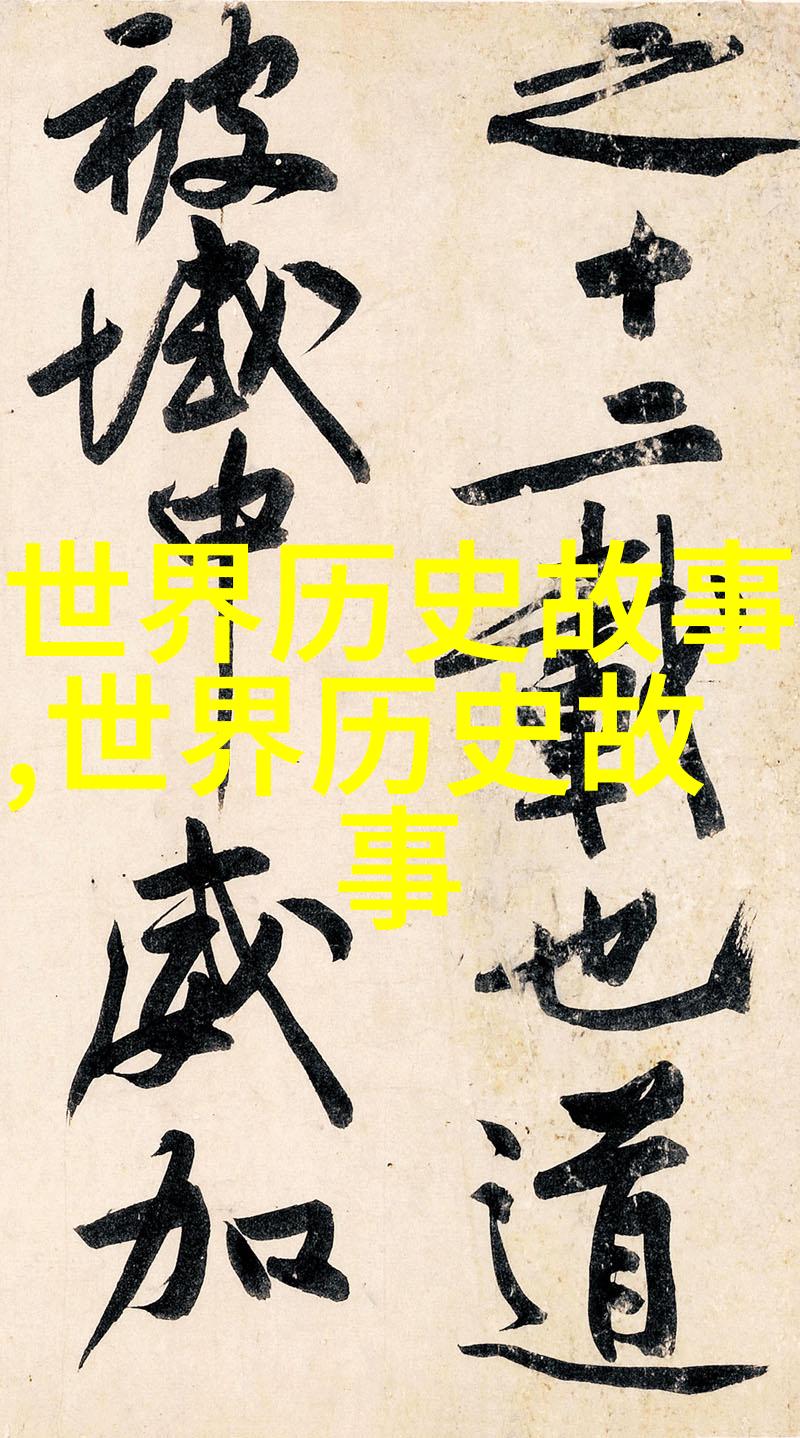 之十二載也道
被域中威加
世界历史故事
,世界历史故
事